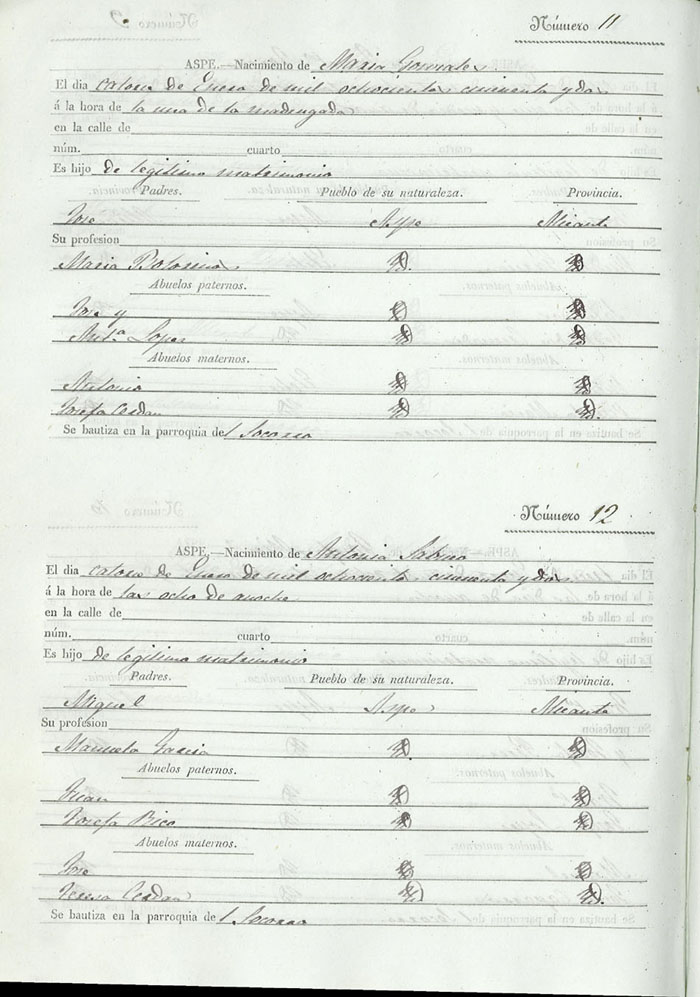 Número 11
ASPE.—Nacimiento de Maria Gonzalez
El dia catorce de Enero de mil ochocientos cincuenta y dos
á la hora de la una de la madrugada
en la calle de
núm. cuarto
Es hijo de legitimo matrimonio
Padres. Pueblo de su naturaleza. Provincia.
Jose Aspe Alicante
Su profesion
Maria
Abuelos paternos.
Jose y
Antª Lopez
Abuelos maternos.
Antonio
Josefa Cerdan
Se bautiza en la parroquia del Socorro
Número 12
ASPE.—Nacimiento de Antonia
El dia catorce de Enero de mil ochocientos cincuenta y dos
á la hora de las ocho de anoche
en la calle de
núm. cuarto
Es hijo de legitimo matrimonio
Padres. Pueblo de su naturaleza. Provincia.
Miguel Aspe Alicante
Su profesión
Manuela Garcia
Abuelos paternos.
Juan
Josefa Rico
Abuelos maternos.
Jose
Teresa Cerdan
Se bautiza en la parroquia del Socorro